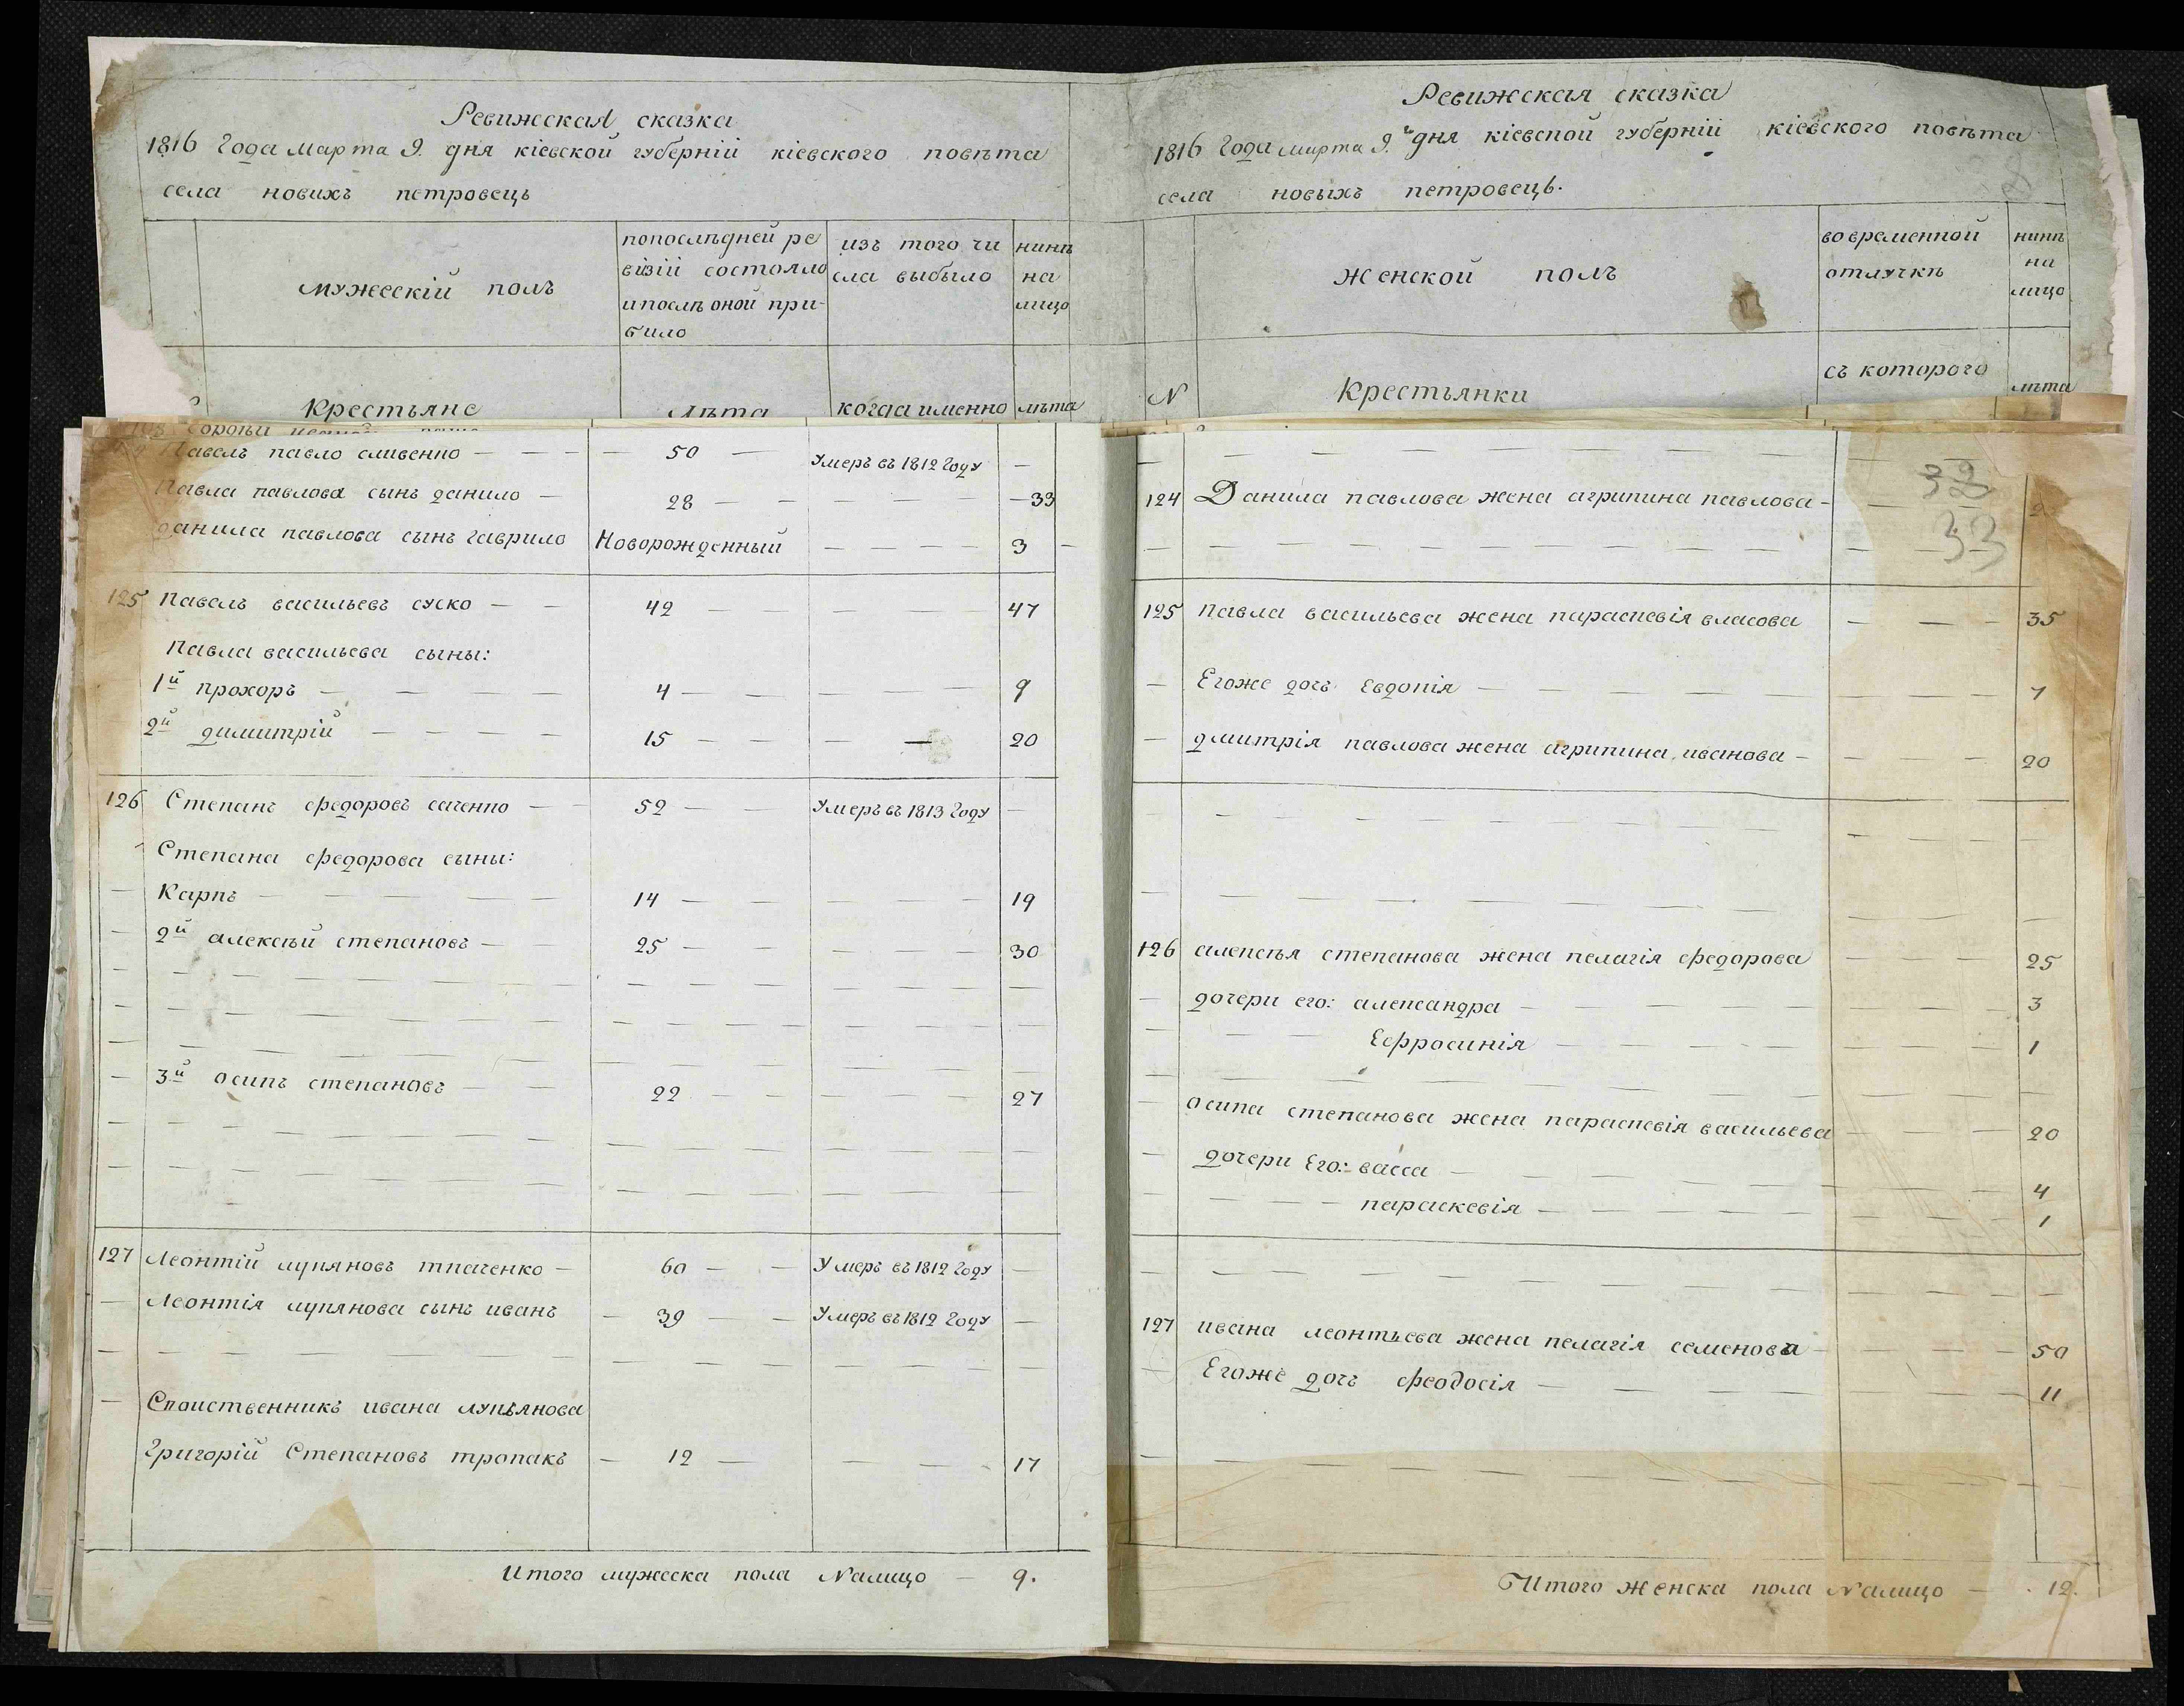 Ревижская сказка
1816 Года марта 9. дня кіевской губерніи кіевского повѣта
села новихъ петровець
мужескій полъ
попослѣдней ре
візіи состояло
ипослѣ оной при-
било
изъ того чи
сла выбыло
нинѣ
на
лицо
Крестьяне
лѣта
когда именно
лѣта
Павелъ павло сливенко — — — 50 — Умеръ въ 1812 Году —
Павла павлова сынъ данило — 28 — — — — — 33
данила павлова сынъ гаврило Новорожденный — — — — 3 —
125 павелъ васильевъ суско — — 42 — — — — 47
Павла васильева сыны:
1й прохоръ — — — 4 — — — — 9
2й димитрій — — — — 15 — — — — 20
126 Степанъ федоровъ саченко — — 52 — — Умеръ въ 1813 Году —
Степана федорова сыны:
— Карпъ — — — — — 14 — — — — 19
— 2й алексѣй степановъ — — 25 — — — — — 30
— 3й осипъ степановъ — — 22 — — — — — 27
127 Леонтій лукяновъ ткаченко — 60 — — Умеръ въ 1812 Году —
— Леонтія лукянова сынъ иванъ — 39 — — Умеръ въ 1812 Году —
— Споиственникъ ивана лукьянова
Григорій Степановъ тропакъ — 12 — — — — 17
Итого мужеска пола Налицо — 9.
Ревижская сказка
1816 Года марта 9.й дня кіевской губерніи кіевского повѣта
села новыхъ петровецъ.
женской полъ
во временной
отлучкѣ
нинѣ
на
лицо
N
Крестьянки
съ которого
лѣта
32
33
124 Данила павлова жена агрипина павлова —
125 павла васильева жена параскевія власова — — — 35
— Егоже дочь Евдокія — — — — — — — — 7
— дмитрія павлова жена агрипина иванова — — — — 20
126 алексѣя степанова жена пелагія федорова — — — 25
— дочери его: александра — — — — — — — 3
— — — Ефросинія — — — — — — — 1
— осипа степанова жена параскевія васильева — — — 20
— дочери Его: васса — — — — — — — 4
— — — параскевія — — — — — — — 1
127 ивана леонтьева жена пелагія семенова — — — — 50
Егоже дочь феодосія — — — — — — — 11
Итого женска пола Налицо — 12.